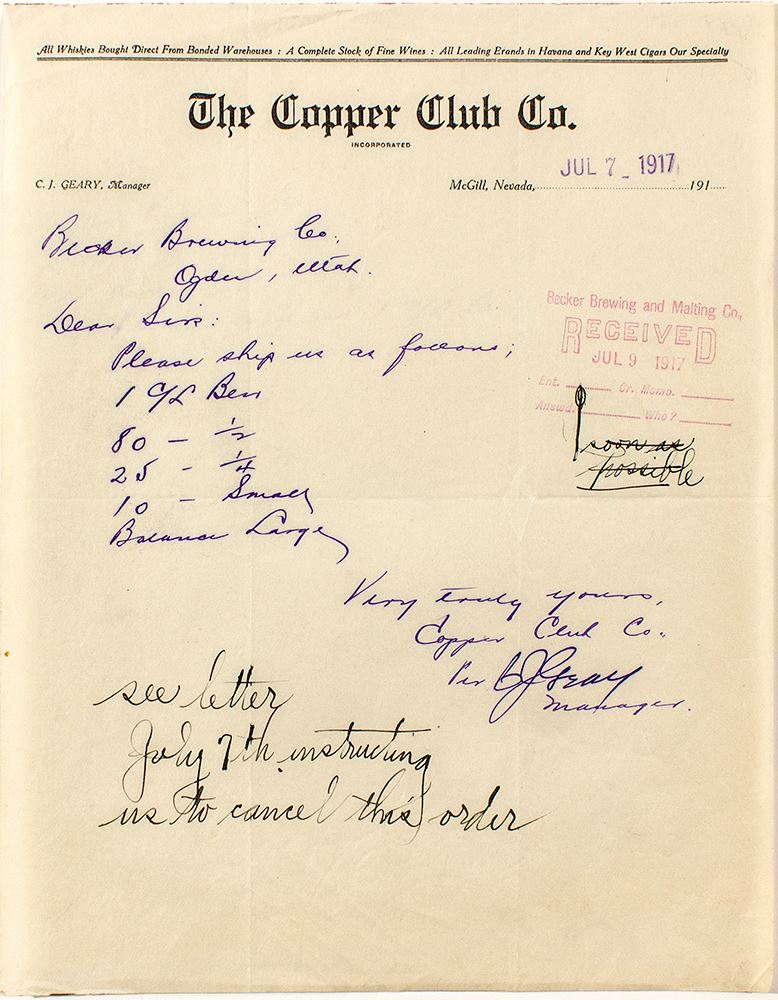 All Whiskies Bought Direct From Bonded Warehouses : A Complete Stock of Fine Wines : All Leading Erands in Havana and Key West Cigars Our Specialty
The Copper Club Co.
INCORPORATED
C. J. GEARY, Manager
McGill, Nevada, JUL 7 _ 1917 191
Becker Brewing Co.,
Ogden, Utah.
Dear Sirs:
Please ship us as follows;
1 C/L Beer
80 - 1/2
25 - 1/4
10 - Small
Balance Large
Becker Brewing and Malting Co.,
RECEIVED
JUL 9 1917
Ent. Or. Memo.
Answd. Who?
soon as
possible
Very truly yours,
Copper Club Co.,
Per C J Geary
Manager.
see letter
July 7th instructing
us to cancel this order